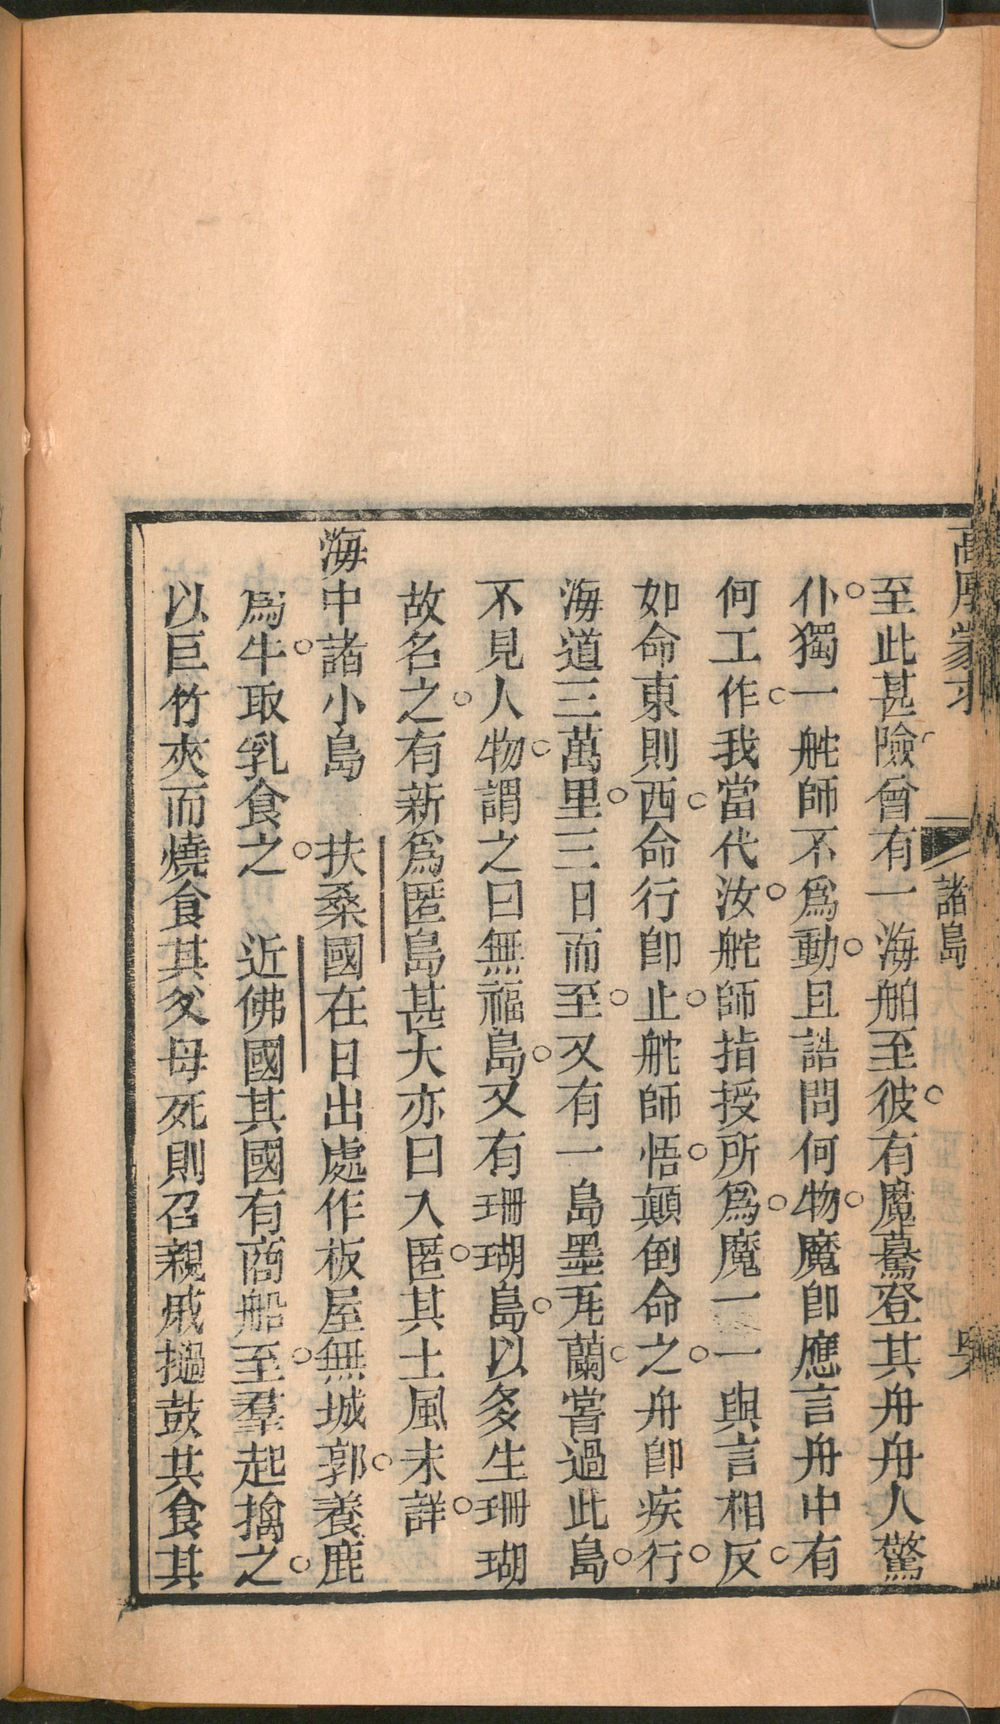 高厚蒙求
諸島
至此甚險曾有一海舶至彼有魔驀登其舟舟人驚
仆獨一舵師不爲動且詰問何物魔卽應言舟中有
何工作我當代汝舵師指授所爲魔一一與言相反
如命東則西命行卽止舵師悟顛倒命之舟卽疾行
海道三萬里三日而至又有一島墨瓦蘭嘗過此島
不見人物謂之曰無福島又有珊瑚島以多生珊瑚
故名之有新爲匿島甚大亦曰入匿其土風未詳
海中諸小島　扶桑國在日出處作板屋無城郭養鹿
爲牛取乳食之　近佛國其國有商船至羣起擒之
以巨竹夾而燒食其父母死則召親戚撾鼓其食其